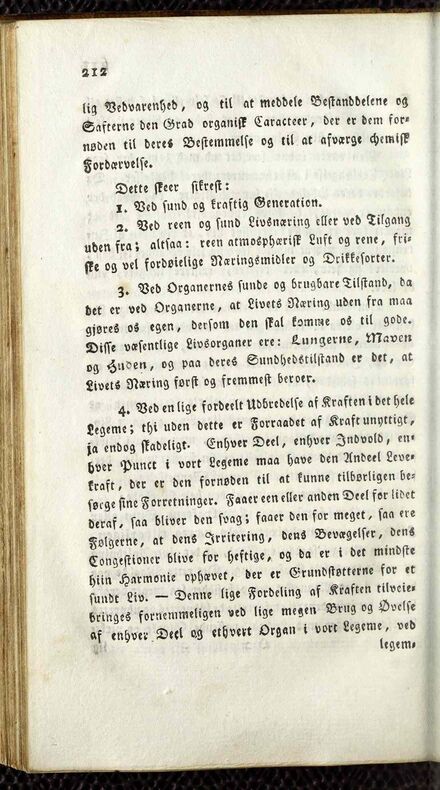 212
lig Vedvarenhed, og til at meddele Bestanddelene og
Safterne den Grad organisk Caracteer, der er dem for-
nøden til deres Bestemmelse og til at afværge chemisk
Fordærvelse.
Dette skeer sikrest:
1. Ved sund og kraftig Generation.
2. Ved reen og sund Livsnæring eller ved Tilgang
uden fra; altsaa: reen atmosphærisk Luft og rene, fri-
ske og vel fordøielige Næringsmidler og Drikkesorter.
3. Ved Organernes sunde og brugbare Tilstand, da
det er ved Organerne, at Livets Næring uden fra maa
gjøres os egen, dersom den skal komme os til gode.
Disse væsentlige Livsorganer ere: Lungerne, Maven
og Huden, og paa deres Sundhedstilstand er det, at
Livets Næring først og fremmest beroer.
4. Ved en lige fordeelt Udbredelse af Kraften i det hele
Legeme; thi uden dette er Forraadet af Kraft unyttigt,
ja endog skadeligt. Enhver Deel, enhver Indvold, en-
hver Punct i vort Legeme maa have den Andeel Leve-
kraft, der er den fornøden til at kunne tilbørligen be-
sørge sine Forretninger. Faaer een eller anden Deel for lidet
deraf, saa bliver den svag; faaer den for meget, saa ere
Følgerne, at dens Irritering, dens Bevægelser, dens
Congestioner blive for heftige, og da er i det mindste
hiin Harmonie ophævet, der er Grundstøtterne for et
sundt Liv. — Denne lige Fordeling af Kraften tilveie-
bringes fornemmeligen ved lige megen Brug og Øvelse
af enhver Deel og ethvert Organ i vort Legeme, ved
legem-